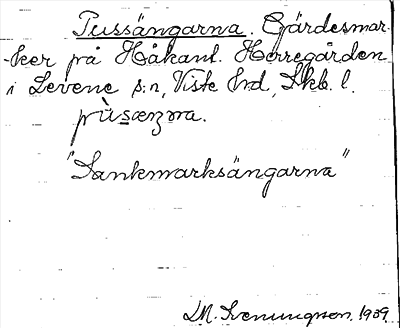 Pussängarna. Gärdesmar-
-ker på Håkant. Herregården
i Levene s:n, Viste hrd, Skb. l.
pùsæŋɒɴa.
"Sankmarksängarna"
M. Sveningson, 1939